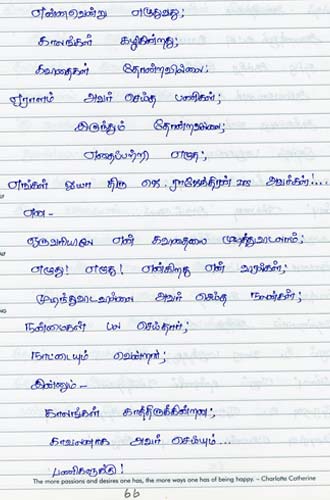 என்னவென்று எழுதுவது;
காலங்கள் கழிகின்றது;
கவிதைகள் தோன்றவில்லை;
ஏராளம் அவர் செய்த பணிகள்;
இருந்தும் தோன்றவில்லை;
எதைப்பற்றி எழுத;
எங்கள் ஐயா திரு அவர்கள்!...
என-
ஒருவரியிலே என் கவிதையை முடித்துவிடலாம்;
எழுது! எழுது! என்கிறது என் வரிகள்;
முடிந்துவிடவில்லை அவர் செய்த
நன்மைகள் பல செய்தார்;
நாட்டையும் வென்றார்;
இன்னும்-
காலங்கள் காத்திருக்கின்றன;
காவலனாக அவர் செய்யும்...
பணிகளுக்கு!
The more passions and desires one has, the more ways one has of being happy. – Charlotte Catherine
66